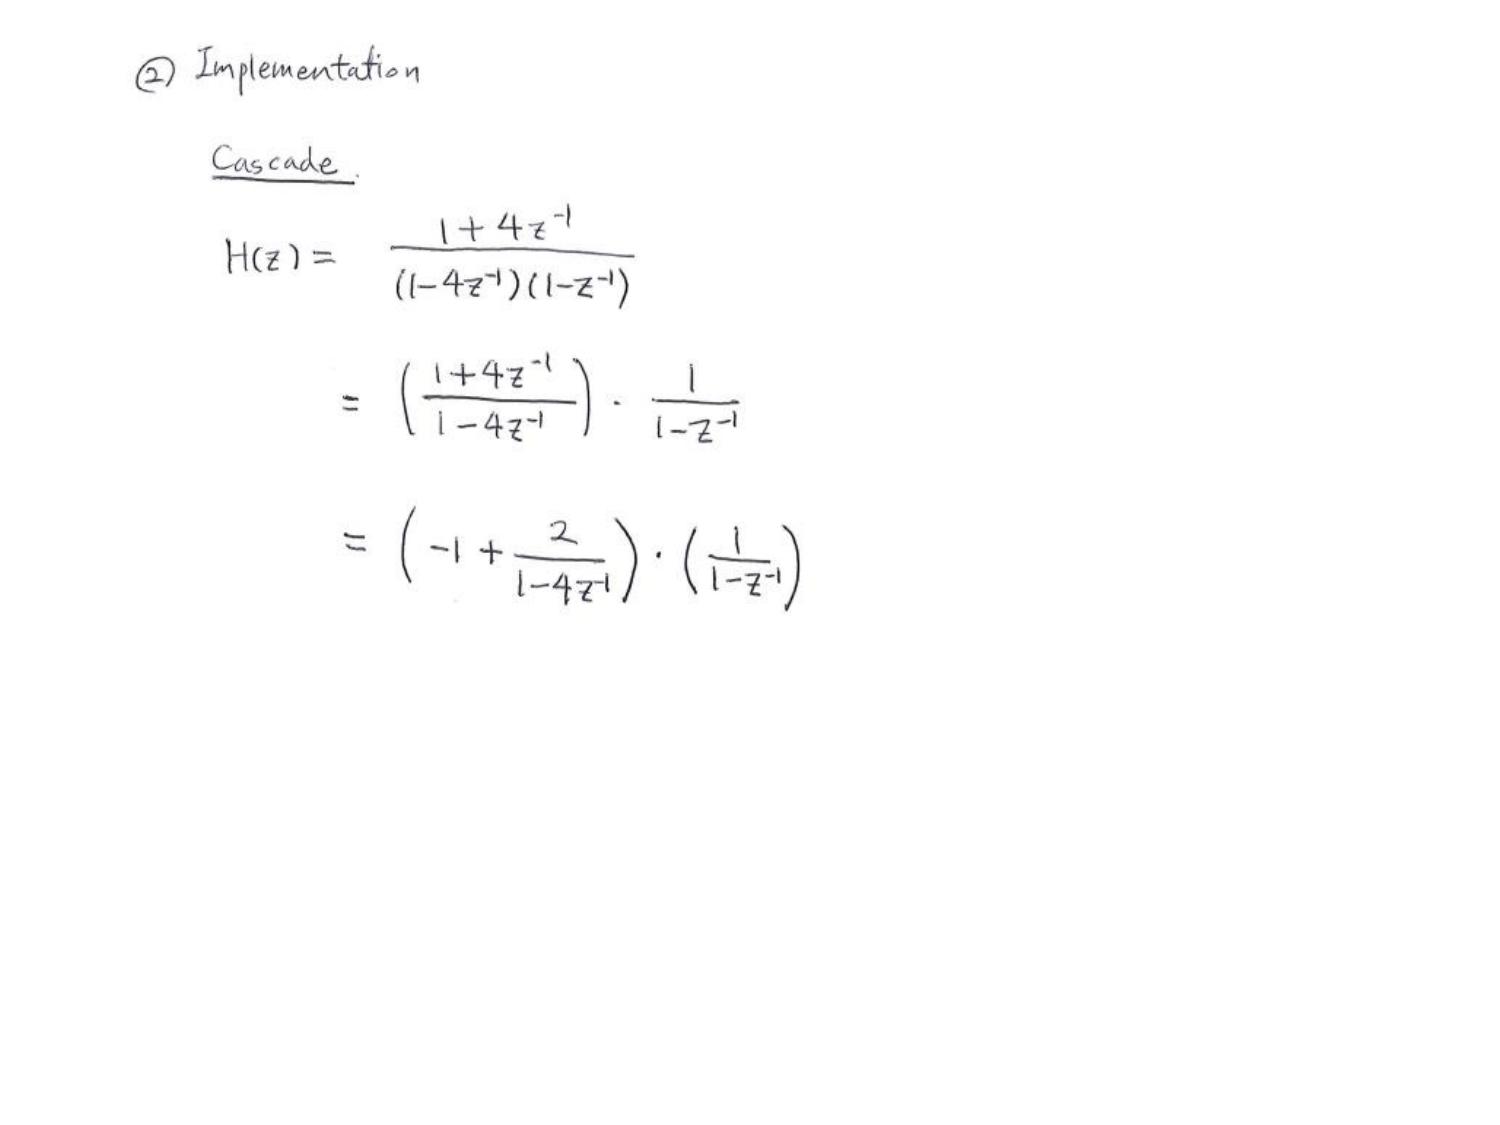 ② Implementation
Cascade.
H(z) = (1 + 4z⁻¹) / ((1 - 4z⁻¹)(1 - z⁻¹))
= ((1 + 4z⁻¹) / (1 - 4z⁻¹)) · 1 / (1 - z⁻¹)
= (-1 + 2 / (1 - 4z⁻¹)) · (1 / (1 - z⁻¹))